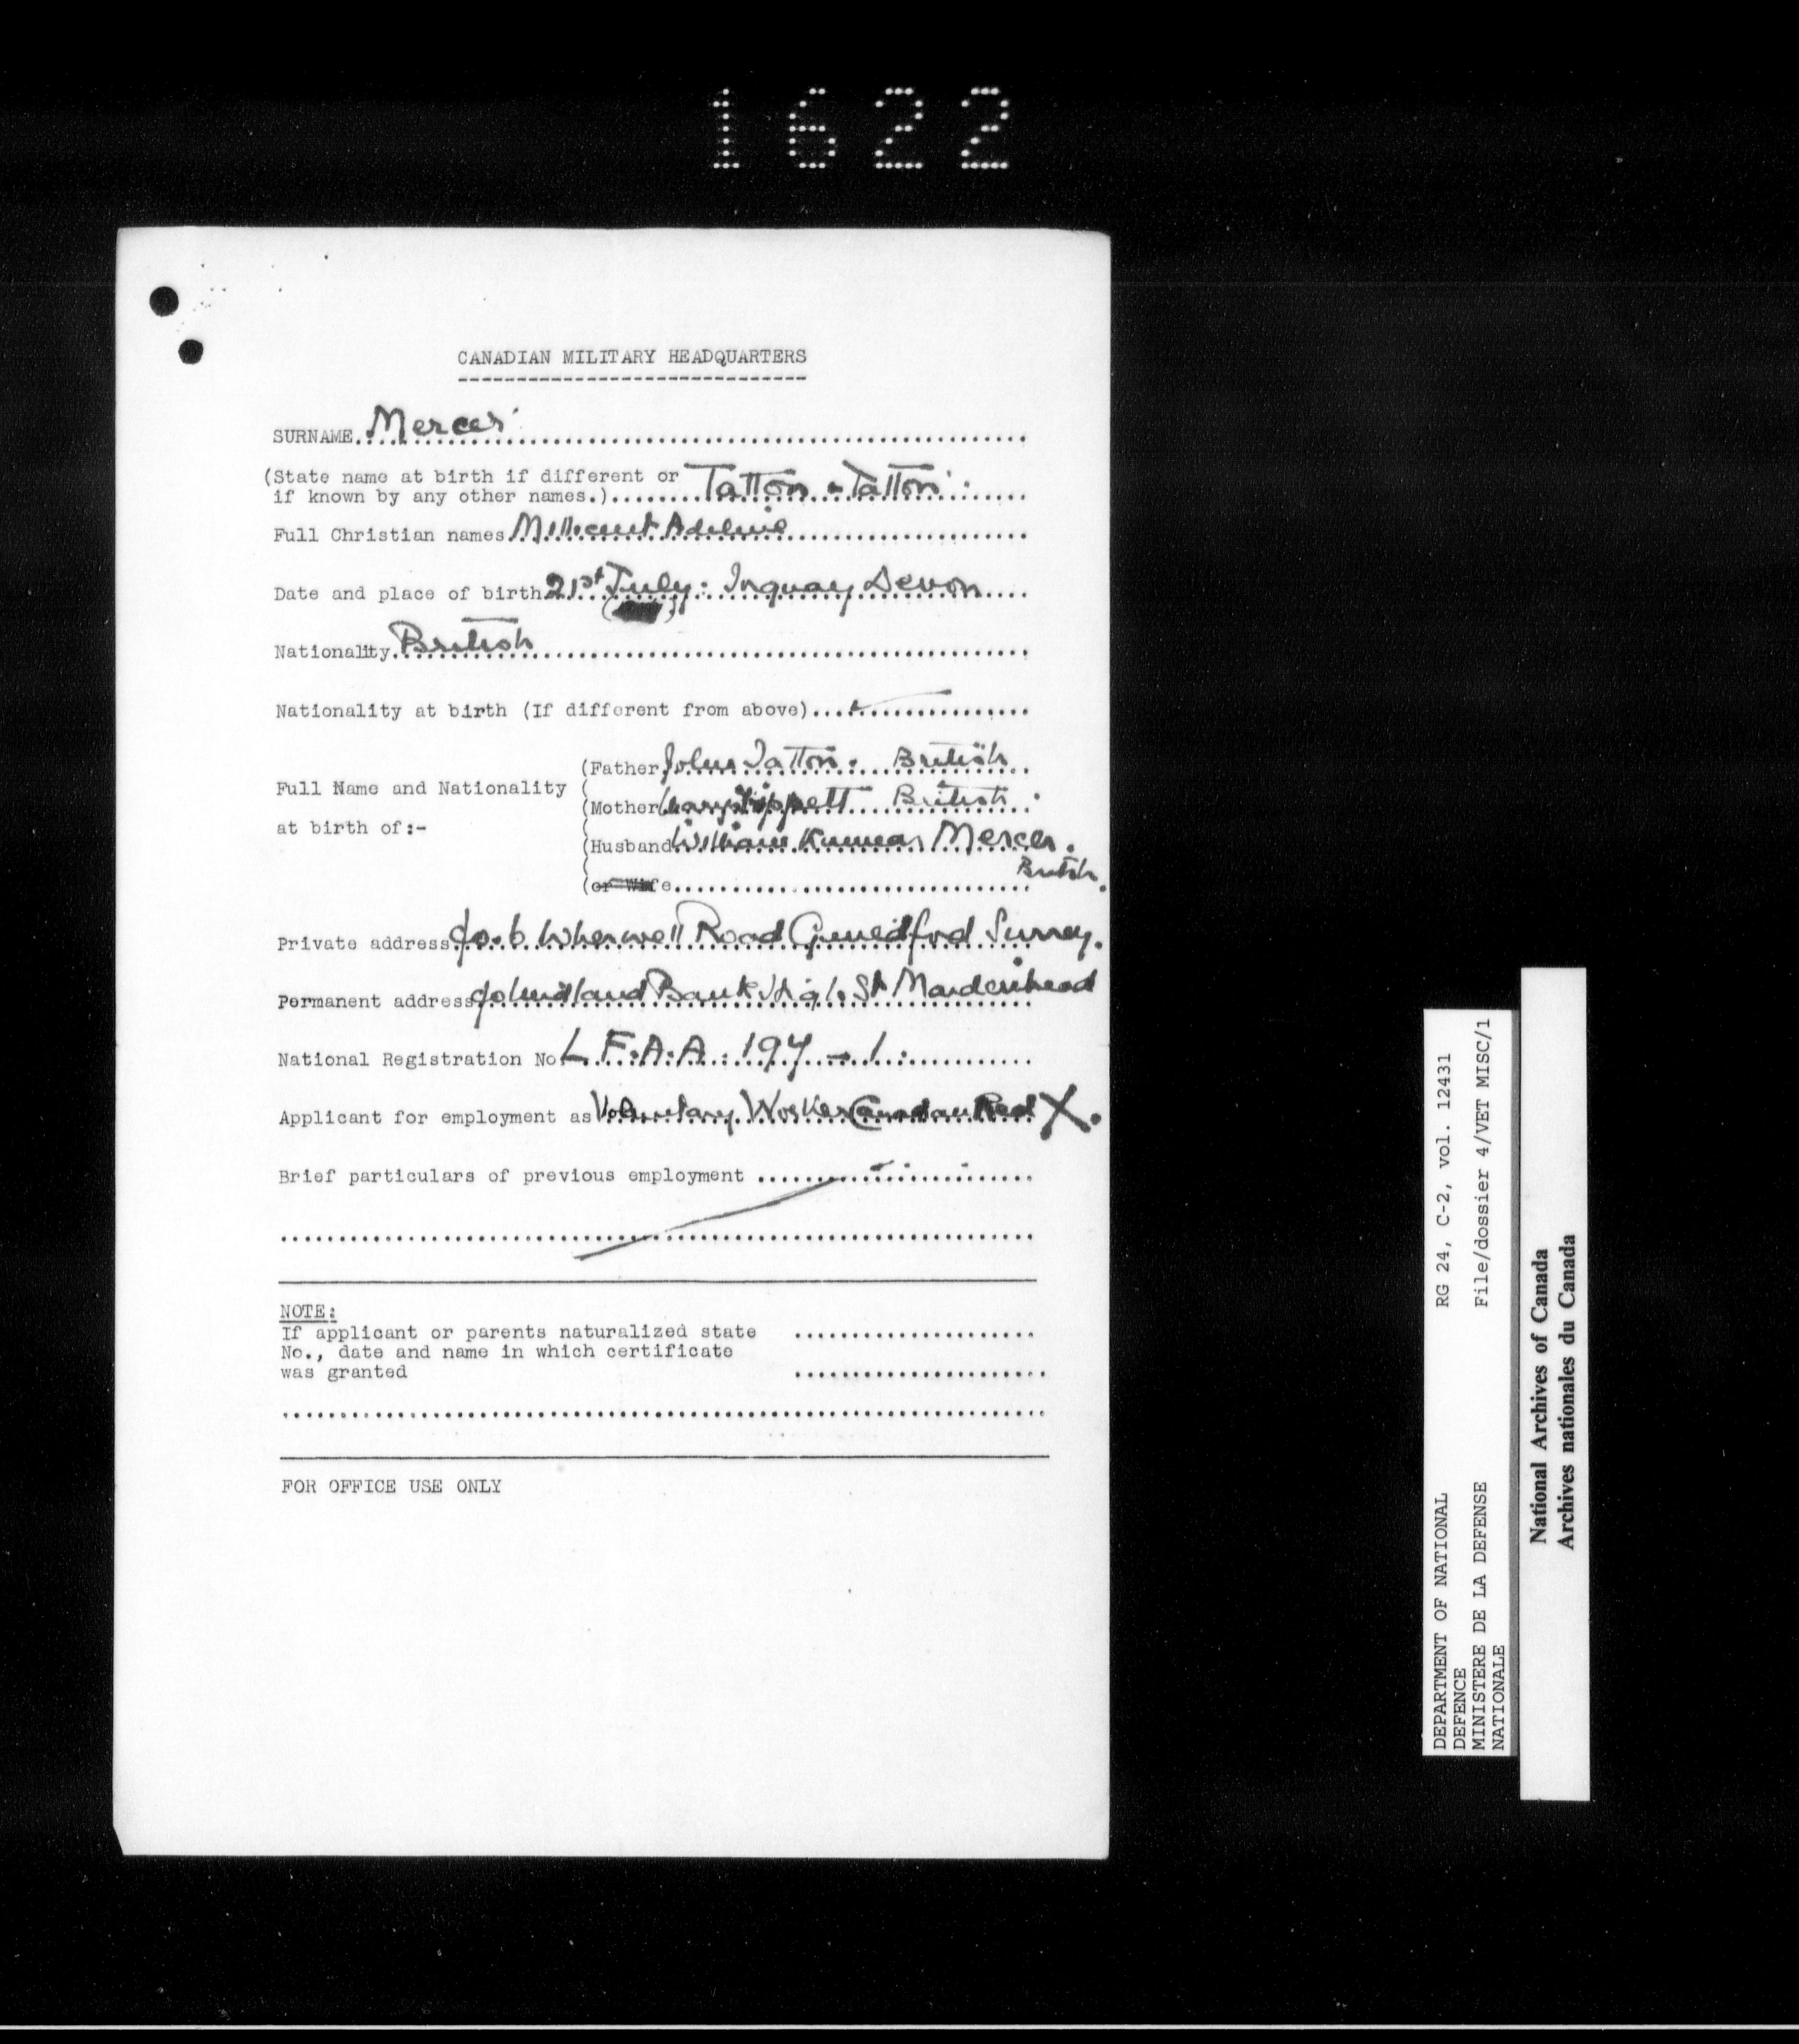 1622
CANADIAN MILITARY HEADQUARTERS
SURNAME Mercer
(State name at birth if different or
if known by any other names.) Tatton - Tatton
Full Christian names Millicent Adeline
Date and place of birth 21st July: Devon
Nationality British
Nationality at birth (If different from above)
Full Name and Nationality
at birth of:-
(Father John Tatton. British
(Mother Mary Tippett British
(Husband William Mercer.
British.
(or Wife
Private address c/o. 6 Wherwell Road Guildford Surrey.
Permanent address c/o Midland Bank High St Maidenhead
National Registration No L.F.A.A. 197 - 1.
Applicant for employment as Voluntary Worker Canadian Red X.
Brief particulars of previous employment
NOTE:
If applicant or parents naturalized state
No., date and name in which certificate
was granted
FOR OFFICE USE ONLY
DEPARTMENT OF NATIONAL
DEFENCE
MINISTERE DE LA DEFENSE
NATIONALE
RG 24, C-2, vol. 12431
File/dossier 4/VET MISC/1
National Archives of Canada
Archives nationales du Canada